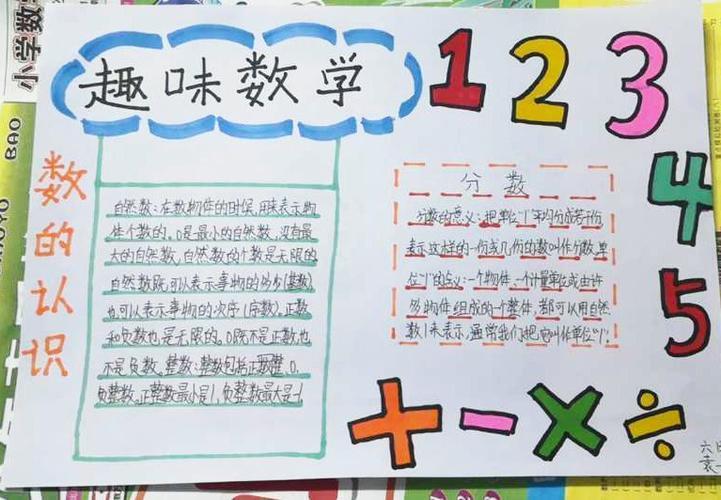 趣味数学
1 2 3
4
5
小学数
BAO
数的认识
自然数:在数物体的时候,用来表示物
体个数的。0是最小的自然数,没有最
大的自然数,自然数的个数是无限的
自然数既可以表示事物的多少(基数)
也可以表示事物的次序(序数),正数
和负数也是无限的。0既不是正数,也
不是负数。整数:整数包括正整数,0,
负整数。正整数最小是1,负整数最大是-1
分数
分数的意义:把单位"1"平均分成若干份
表示这样的一份或几份的数叫作分数,单
位"1"的含义:一个物体、一个计量单位或由许
多物体组成的一个整体,都可以用自然
数1来表示,通常我们把它叫作单位"1"。
+ - × ÷
六
袁